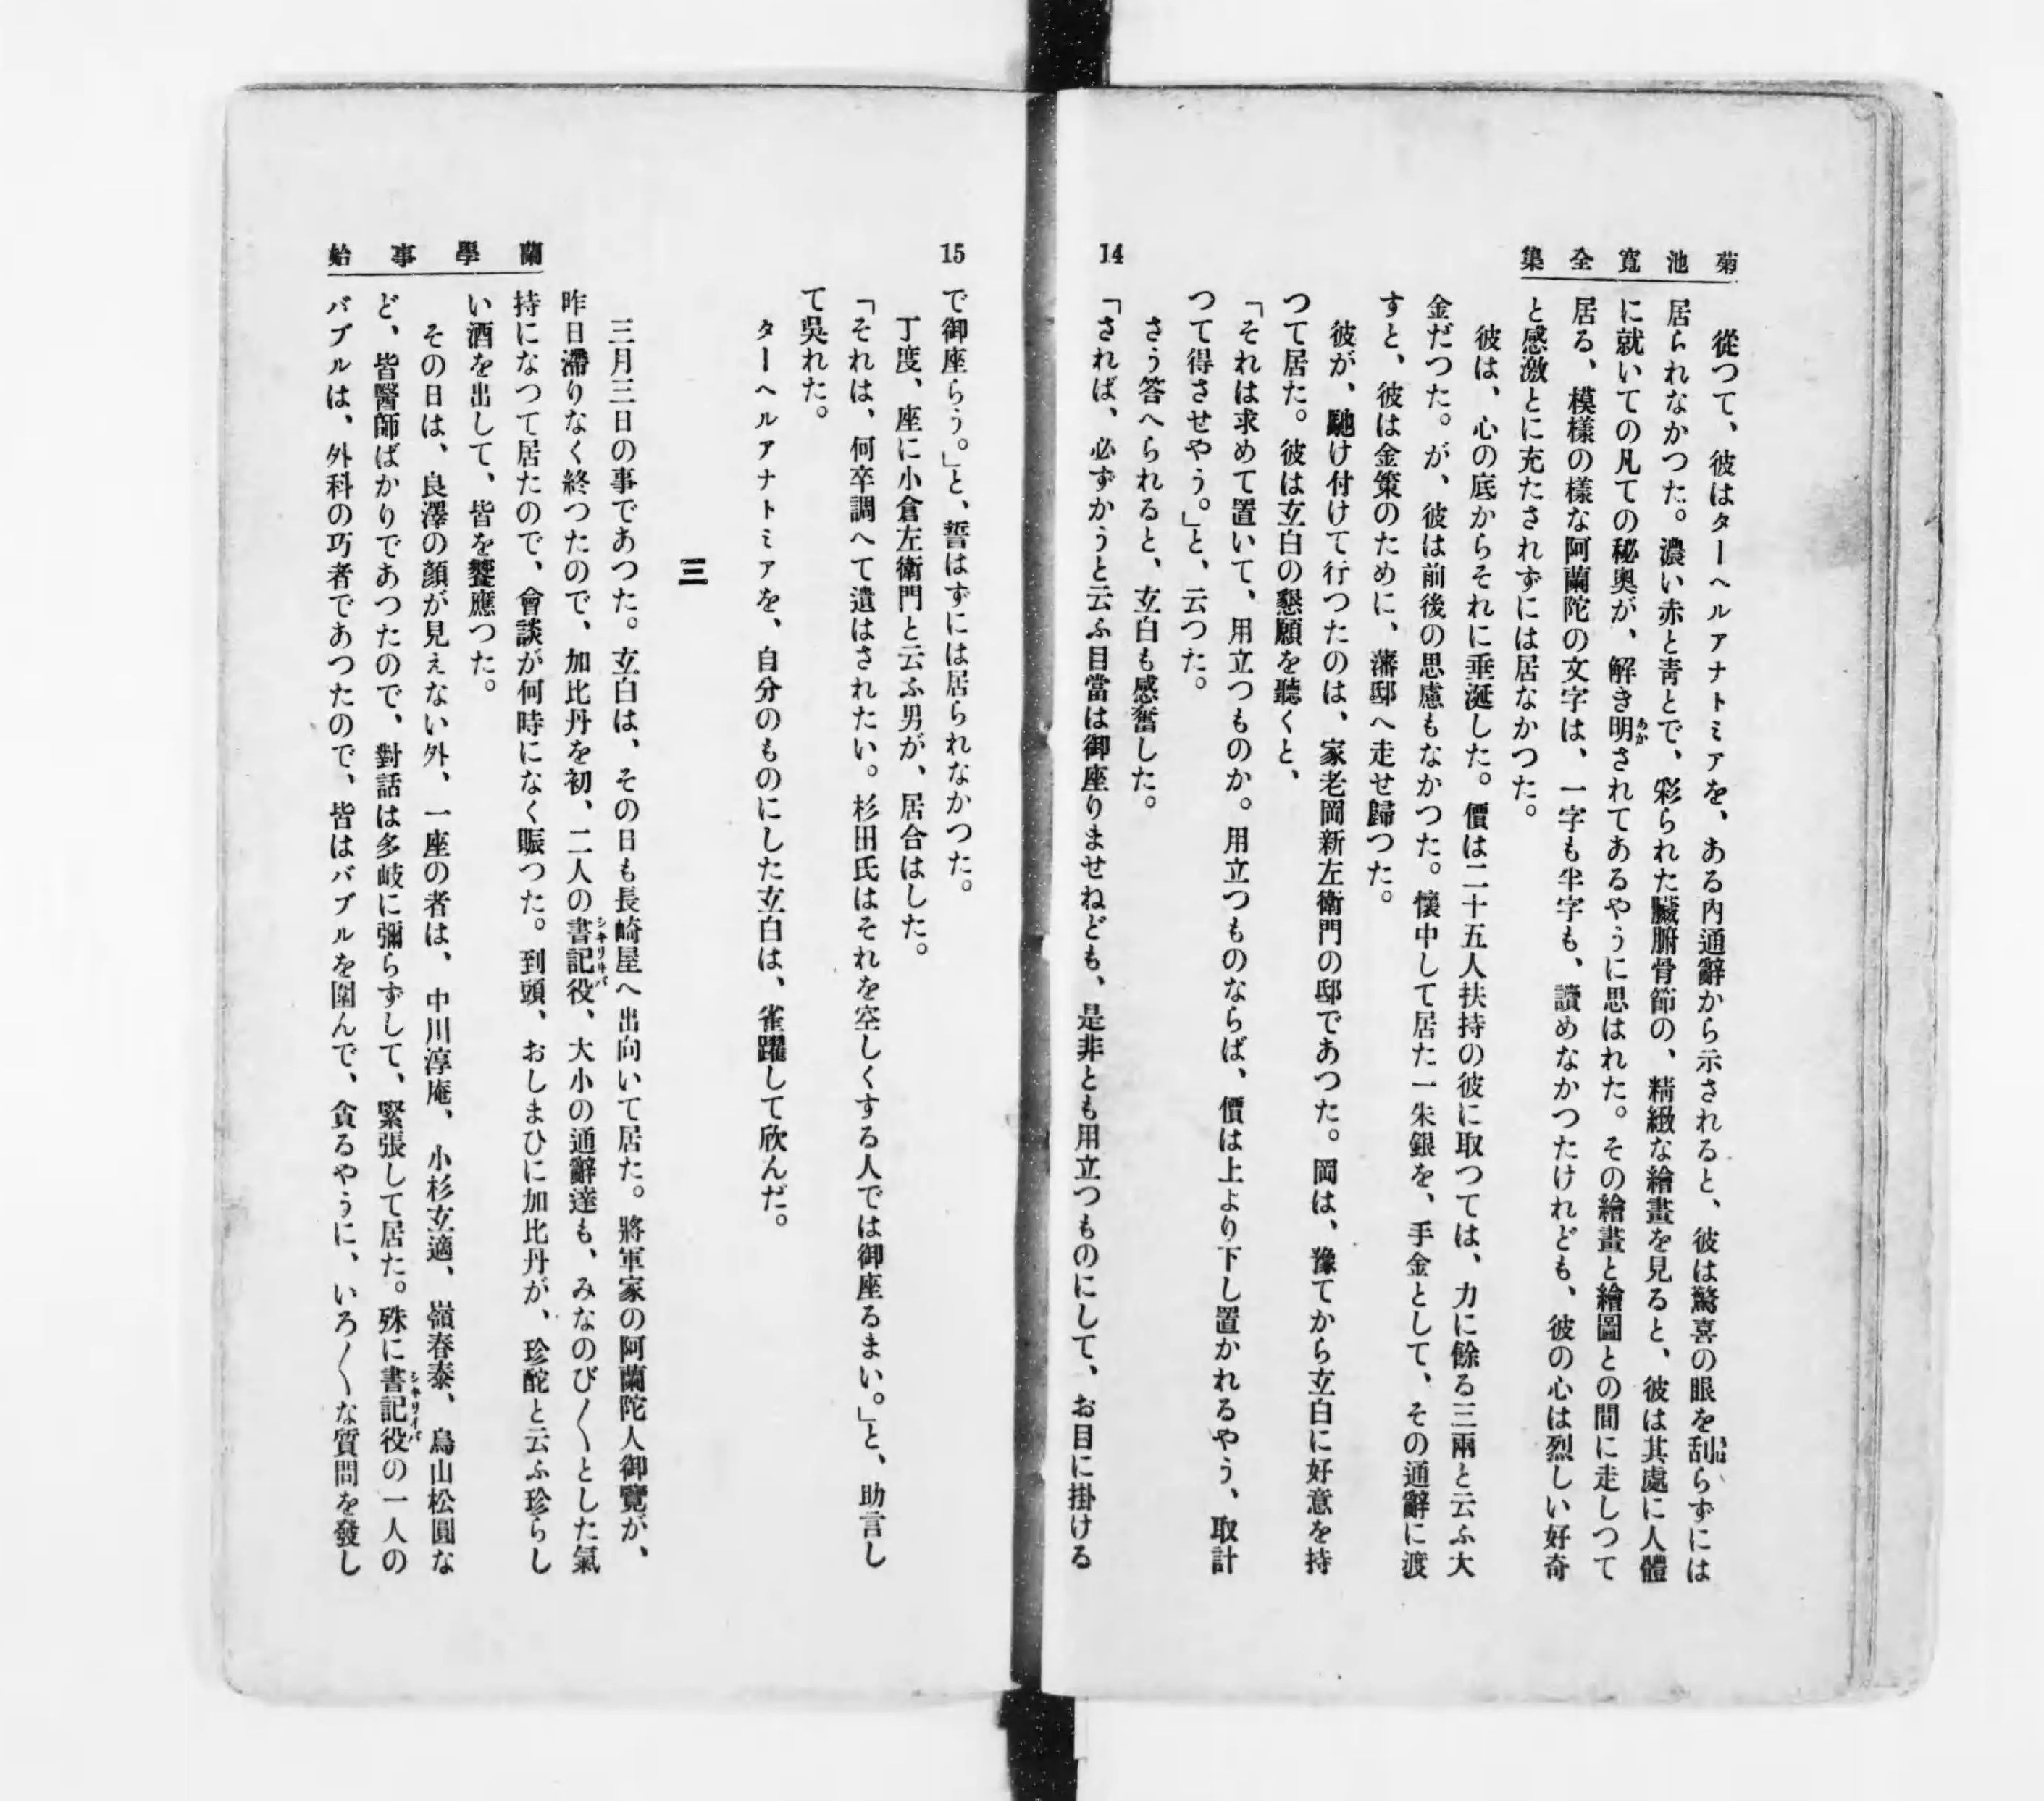 菊池寬全集
從つて、彼はターヘルアナトミアを、ある內通辭から示されると、彼は驚喜の眼を刮らずには
居られなかつた。濃い赤と靑とで、彩られた臟腑骨節の、精緻な繪畫を見ると、彼は其處に人體
に就いての凡ての秘奧が、解き明されてあるやうに思はれた。その繪畫と繪圖との間に走しつて
居る、模樣の樣な阿蘭陀の文字は、一字も半字も、讀めなかつたけれども、彼の心は烈しい好奇
と感激とに充たされずには居なかつた。
彼は、心の底からそれに垂涎した。價は二十五人扶持の彼に取つては、力に餘る三兩と云ふ大
金だつた。が、彼は前後の思慮もなかつた。懷中して居た一朱銀を、手金として、その通辭に渡
すと、彼は金策のために、藩邸へ走せ歸つた。
彼が、馳け付けて行つたのは、家老岡新左衞門の邸であつた。岡は、豫てから玄白に好意を持
つて居た。彼は玄白の懇願を聽くと、
「それは求めて置いて、用立つものか。用立つものならば、價は上より下し置かれるやう、取計
つて得させやう。」と、云つた。
さう答へられると、玄白も感奮した。
「されば、必ずかうと云ふ目當は御座りませねども、是非とも用立つものにして、お目に掛ける
14
15
で御座らう。」と、誓はずには居られなかつた。
丁度、座に小倉左衞門と云ふ男が、居合はした。
「それは、何卒調へて遺はされたい。杉田氏はそれを空しくする人では御座るまい。」と、助言し
て吳れた。
ターヘルアナトミアを、自分のものにした玄白は、雀躍して欣んだ。
三
三月三日の事であつた。玄白は、その日も長崎屋へ出向いて居た。將軍家の阿蘭陀人御覽が、
昨日滯りなく終つたので、加比丹を初、二人の書記役、大小の通辭達も、みなのび〱とした氣
持になつて居たので、會談が何時になく賑つた。到頭、おしまひに加比丹が、珍酡と云ふ珍らし
い酒を出して、皆を饗應つた。
その日は、良澤の顏が見えない外、一座の者は、中川淳庵、小杉玄適、嶺春泰、鳥山松圓な
ど、皆醫師ばかりであつたので、對話は多岐に彌らずして、緊張して居た。殊に書記役の一人の
バブルは、外科の巧者であつたので、皆はバブルを圍んで、貪るやうに、いろ〱な質問を發し
蘭學事始